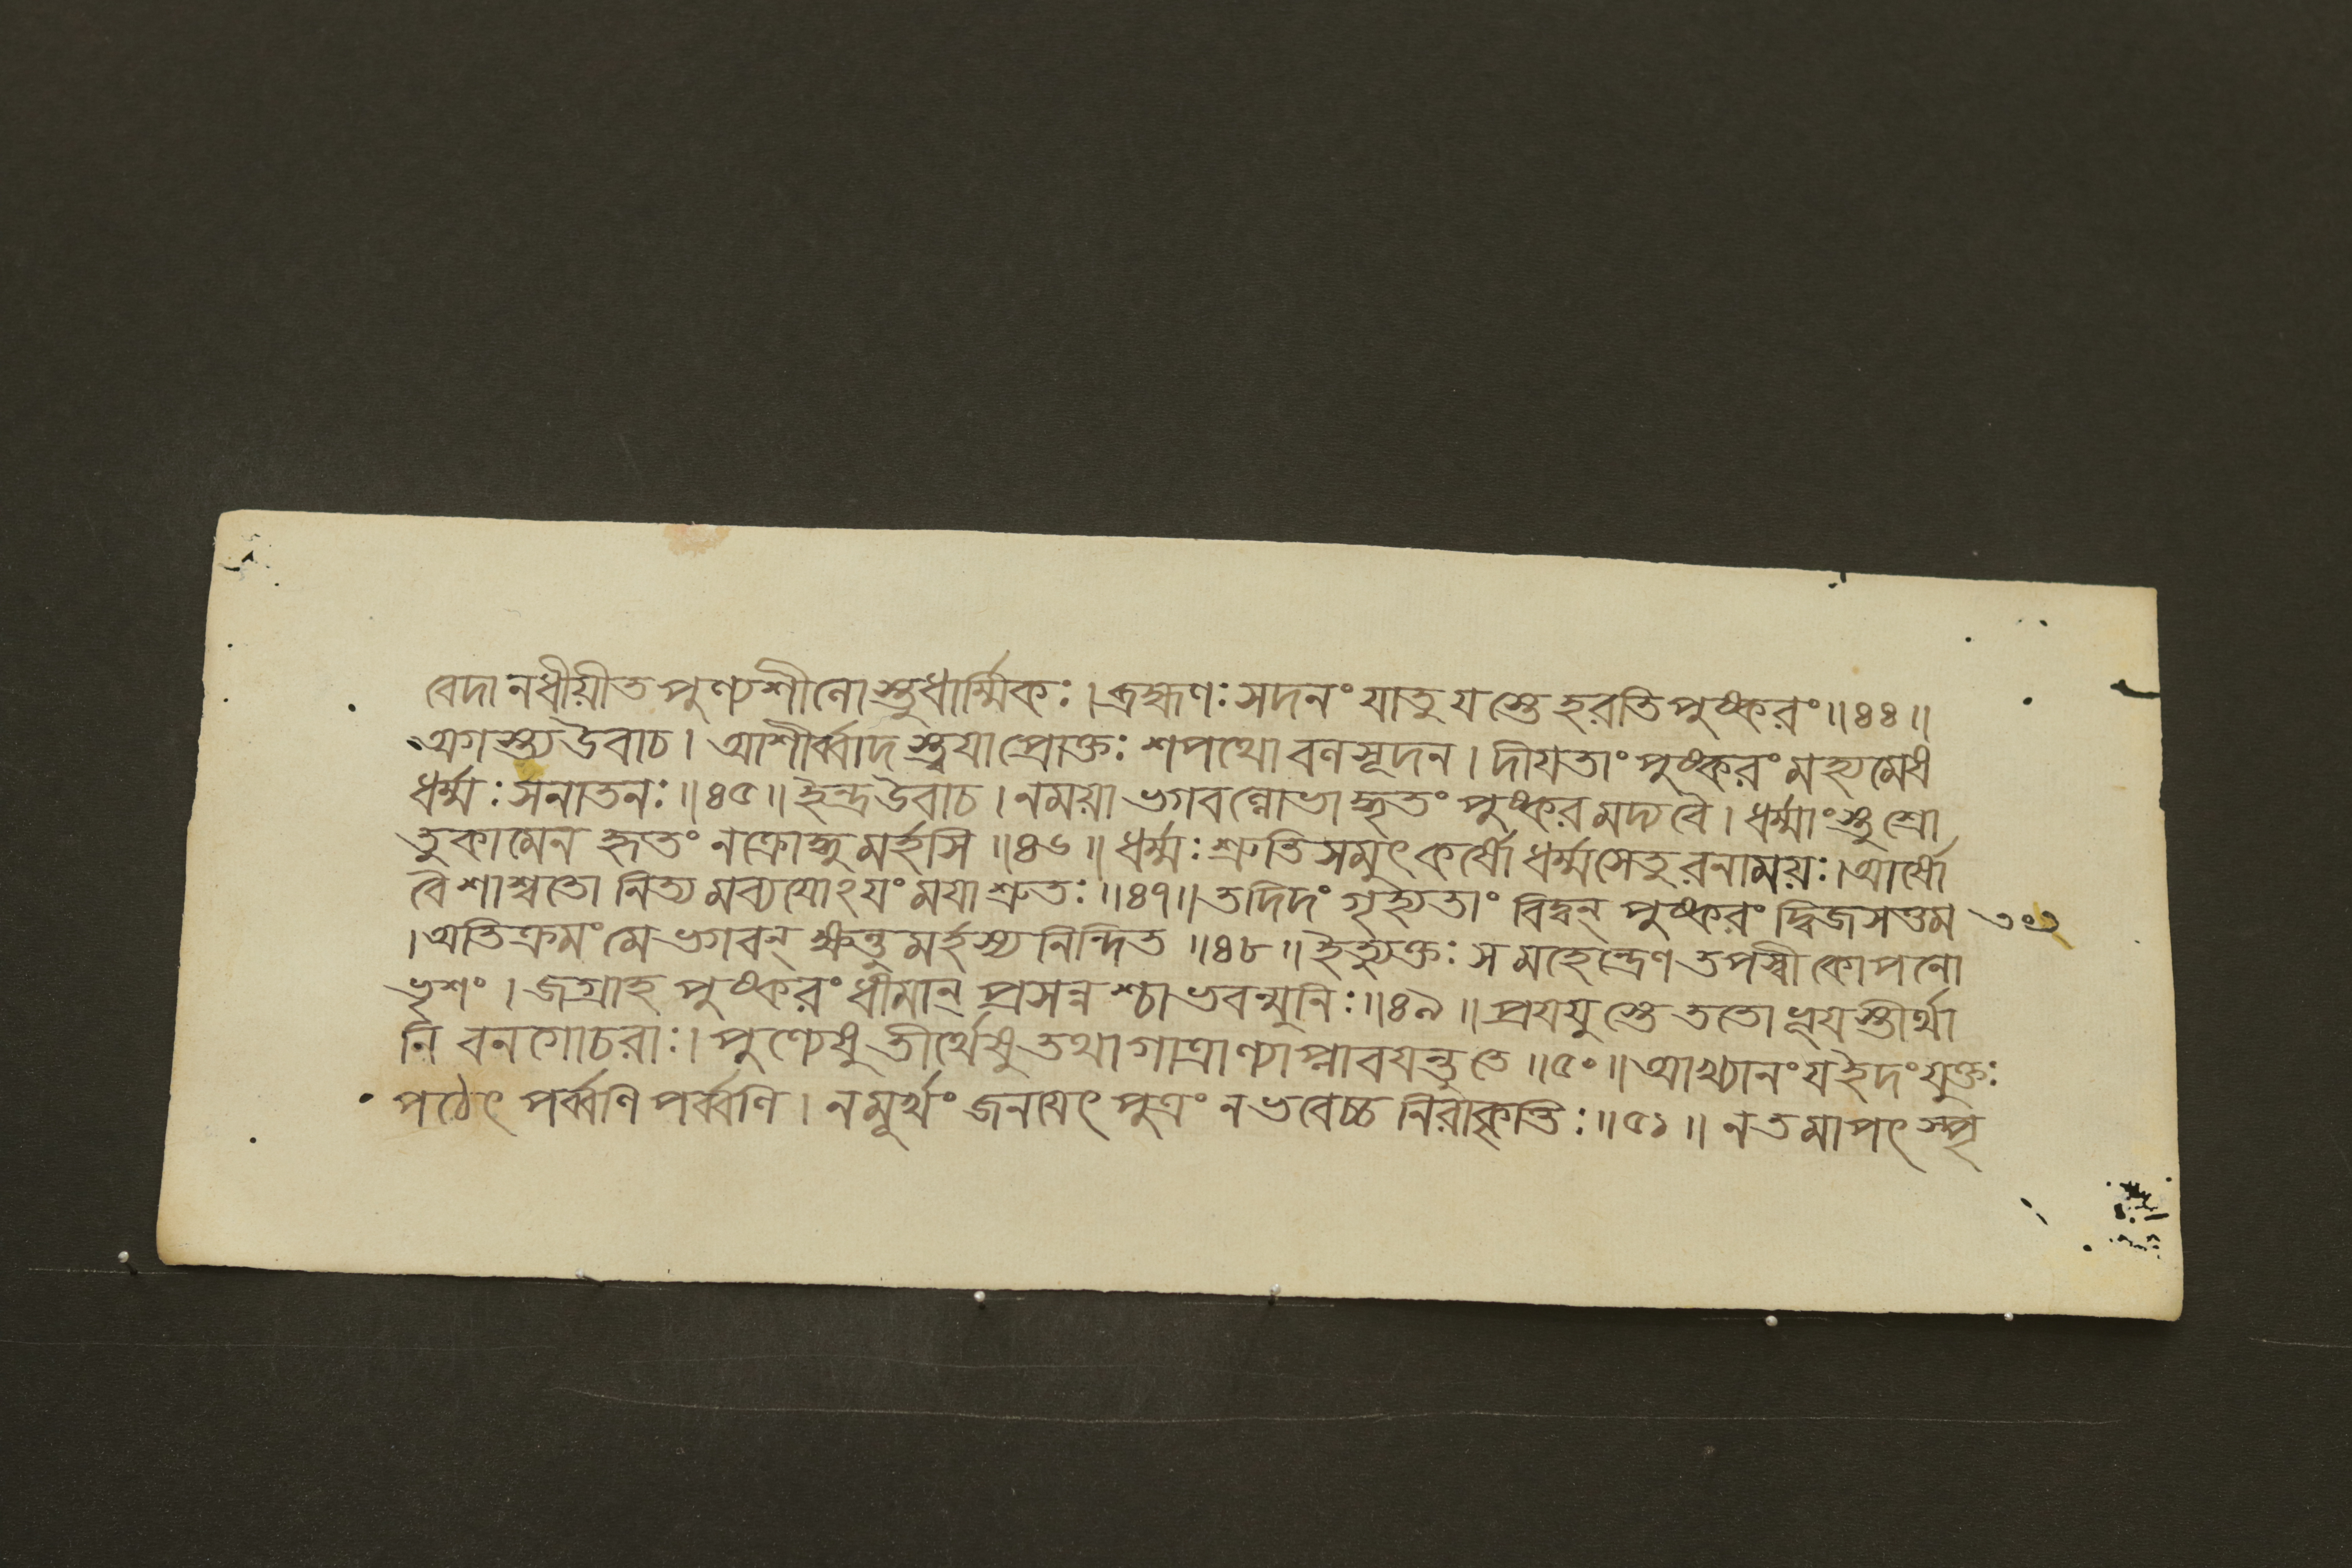 বেদানধীয়ীত পুণ্যশীলোস্তুধার্ম্মিকঃ। ব্রহ্মণঃ সদনং যাতু যস্তে হরতি পুষ্করং॥৪৪॥
অগস্ত্য উবাচ। আশীর্ব্বাদস্ত্বয়া প্রোক্তঃ শপথো বলসূদন। দীয়তাং পুষ্করং মহ্যমেষ
ধর্ম্মঃ সনাতনঃ॥৪৫॥ ইন্দ্র উবাচ। ন ময়া ভগবন্লোভাদ্ধৃতং পুষ্করমদ্য বৈ। ধর্ম্মাংস্তু শ্রো
তুকামেন হৃতং ন ক্রোদ্ধুমর্হসি॥৪৬॥ ধর্ম্মঃ শ্রুতিসমুৎকর্ষো ধর্ম্মসেতুরনাময়ঃ। আর্ষো
বৈ শাশ্বতো নিত্যমব্যয়োঽয়ং ময়া শ্রুতঃ॥৪৭॥ তদিদং গৃহ্যতাং বিদ্বন্ পুষ্করং দ্বিজসত্তম ৩০৩
। অতিক্রমং মে ভগবন্ ক্ষন্তুমর্হস্যনিন্দিত॥৪৮॥ ইত্যুক্তঃ স মহেন্দ্রেণ তপস্বী কোপনো
ভৃশং। জগ্রাহ পুষ্করং ধীমান্ প্রসন্নশ্চাভবন্মুনিঃ॥৪৯॥ প্রযযুস্তে ততো ভূয়স্তীর্থা
নি বনগোচরাঃ। পুণ্যেষু তীর্থেষু তথা গাত্রাণ্যাপ্লাবয়ন্তু তে॥৫০॥ আখ্যানং য ইদং যুক্তঃ
পঠেৎ পর্ব্বণি পর্ব্বণি। ন মূর্খং জনয়েৎ পুত্রং ন ভবেচ্চ নিরাকৃতিঃ॥৫১॥ ন তমাপৎ স্পৃ